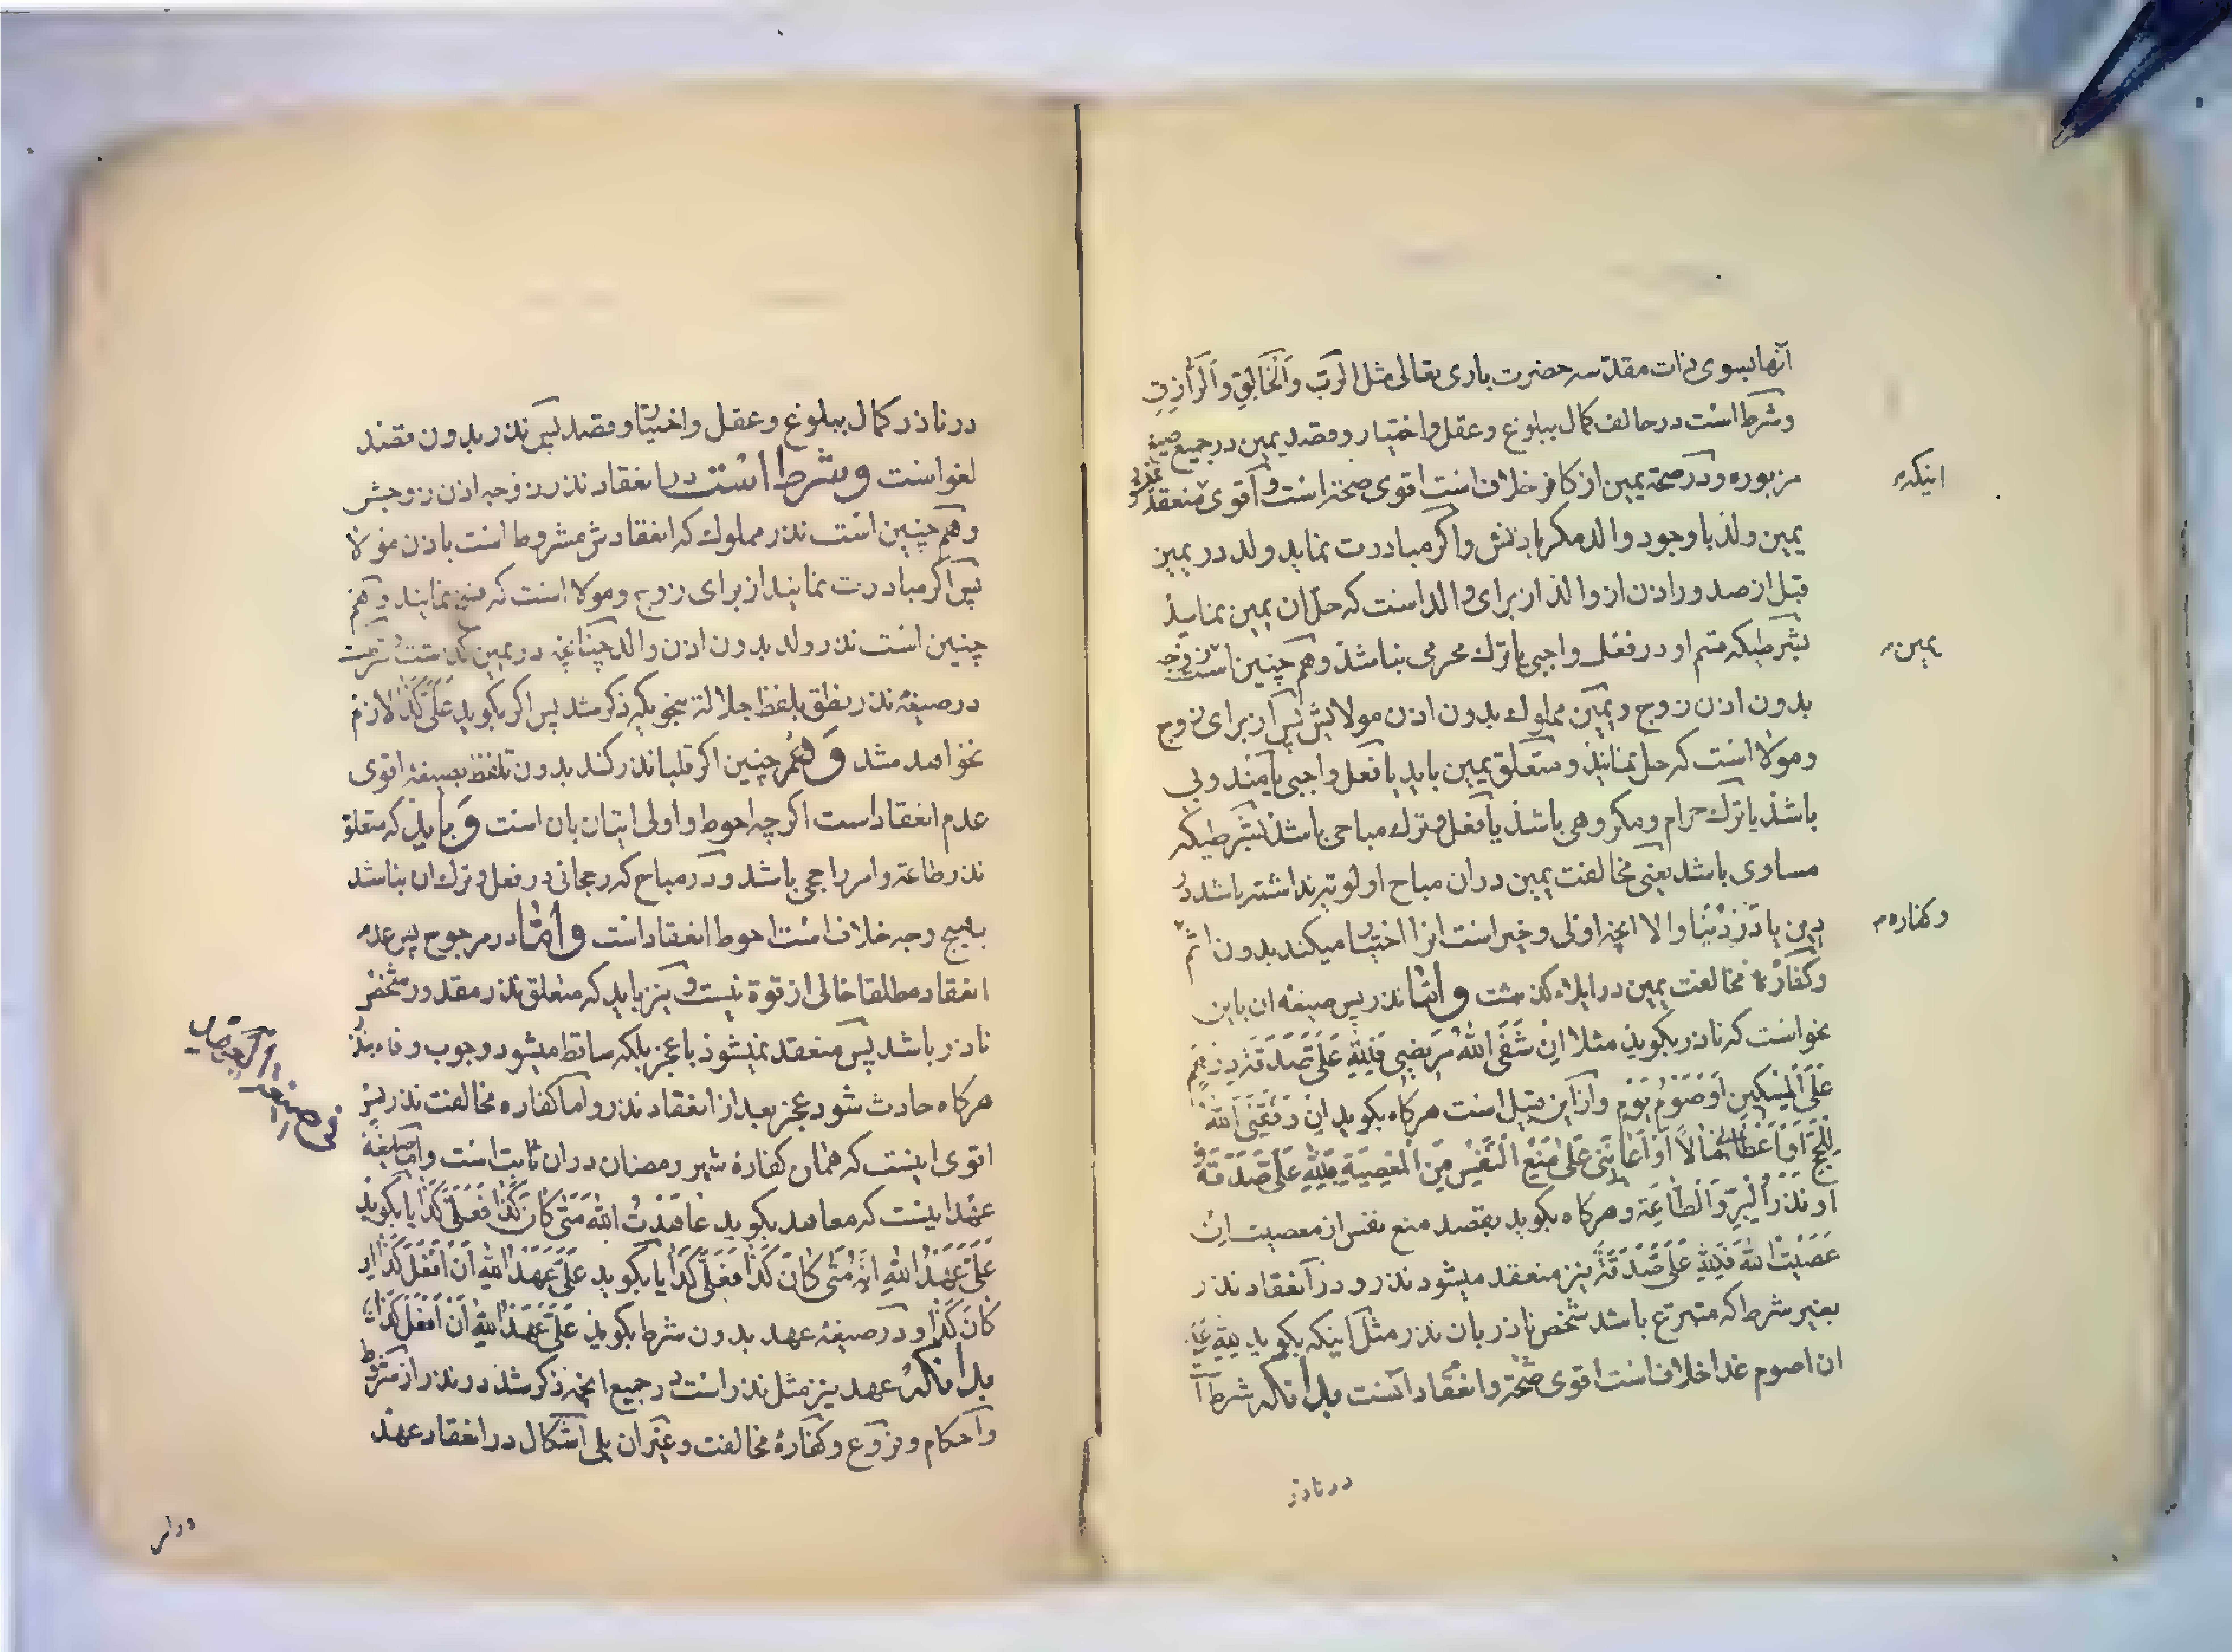 آنها بسوی ذات مقدّسه حضرت باری تعالی مثل الرَّبِّ وَالْخَالِقِ وَالرَّازِقِ
وشرط است در حالف کمال ببلوغ و عقل و اختیار و قصد یمین در جمیع صیغ
مزبوره و در صحة یمین از کافر خلاف است اقوی صحة است و اقوی منعقد
اینکه
یمین ولد با وجود والد مکر باذنش و اکر مبادرت نماید ولد در یمین
قبل از صدور اذن از والد از برای والد است که حل ان یمین نماید
بشرطیکه قسم او در فعل واجبی یا ترك محرمی نباشد و هم چنین است زوجه
یمین
بدون اذن زوج و یمین مملوك بدون اذن مولایش پس از برای زوج
و مولا است که حل نمایند و متعلق یمین باید یا فعل واجبی یا مندوبی
باشد یا ترك حرام و مکروهی باشد یا فعل و ترك مباحی باشد بشرطیکه
مساوی باشد یعنی مخالفت یمین در ان مباح اولویة نداشته باشد در
دین یا در دنیا و الا انچه اولی و خیر است انرا اختیار میکند بدون اثم
و کفاره
و کفارهٔ مخالفت یمین در ایلاء کذشت و امّا نذر پس صیغه ان باین
نحو است که ناذر بکوید مثلا اِنْ شَفَی اللّهُ مَرِیضِی فَلِلّهِ عَلَیَّ صَدَقَةُ دِرْهَمٍ
عَلَی الْمِسْکِینِ اَوْ صَوْمُ یَوْمٍ و از این قبیل است هرکاه بکوید اِنْ وَفَّقَنِیَ اللّهُ
لِلْحَجِّ اَوْ اَعْطَانِی مَالاً اَوْ اَعَانَنِی عَلَی مَنْعِ النَّفْسِ مِنَ الْمَعْصِیَةِ فَلِلّهِ عَلَیَّ صَدَقَةٌ
اَوْ نَذْرُ الْبِرِّ وَالطَّاعَةِ و هرکاه بکوید بقصد منع نفس از معصیت اِنْ
عَصَیْتُ اللّهَ فَلِلّهِ عَلَیَّ صَدَقَةٌ نیز منعقد میشود نذر و در انعقاد نذر
بغیر شرط که متبرع باشد شخص ناذر بان نذر مثل اینکه بکوید لِلّهِ عَلَیَّ
ان اصوم غدا خلاف است اقوی صحة و انعقاد آنست بدانکه شرط
در ناذر
در ناذر کمال ببلوغ و عقل و اختیار و قصد پس نذر بدون قصد
لغو است و شرط است در انعقاد نذر زوجه اذن زوجش
و هم چنین است نذر مملوك که انعقادش مشروط است باذن مولا
پس اکر مبادرت نمایند از برای زوج و مولا است که منع نمایند و هم
چنین است نذر ولد بدون اذن والد چنانچه در یمین کذشت
در صیغهٔ نذر نطق بلفظ جلاله بنحویکه ذکر شد پس اکر بکوید عَلَیَّ کَذَا لازم
نخواهد شد و هم چنین اکر قلبا نذر کند بدون تلفظ بصیغه اقوی
عدم انعقاد است اکر چه احوط و اولی اتیان بان است و باید که متعلق
نذر طاعة و امر راجحی باشد و در مباح که رجحانی در فعل و ترك ان نباشد
بهیچ وجه خلاف است احوط انعقاد است و امّا در مرجوح پس عدم
انعقاد مطلقا خالی از قوة نیست و نیز باید که متعلق نذر مقدور شخص
ناذر باشد پس منعقد نمیشود با عجز بلکه ساقط میشود وجوب وفاء بنذر
هرکاه حادث شود عجز بعد از انعقاد نذر و اما کفاره مخالفت نذر پس
اقوی اینست که همان کفارهٔ شهر رمضان در ان ثابت است و اما صیغهٔ
عهد اینست که معاهد بکوید عَاهَدْتُ اللّهَ مَتَی کَانَ کَذَا فَعَلَیَّ کَذَا یا بکوید
عَلَیَّ عَهْدُ اللّهِ اَنَّهُ مَتَی کَانَ کَذَا فَعَلَیَّ کَذَا یا بکوید عَلَیَّ عَهْدُ اللّهِ اَنْ اَفْعَلَ کَذَا اِنْ
کَانَ کَذَا و در صیغهٔ عهد بدون شرط بکوید عَلَیَّ عَهْدُ اللّهِ اَنْ اَفْعَلَ کَذَا
بدانکه عهد نیز مثل نذر است در جمیع انچه ذکر شد در نذر از شروط
و احکام و فروع و کفارهٔ مخالفت و غیر ان بلی اشکال در انعقاد عهد